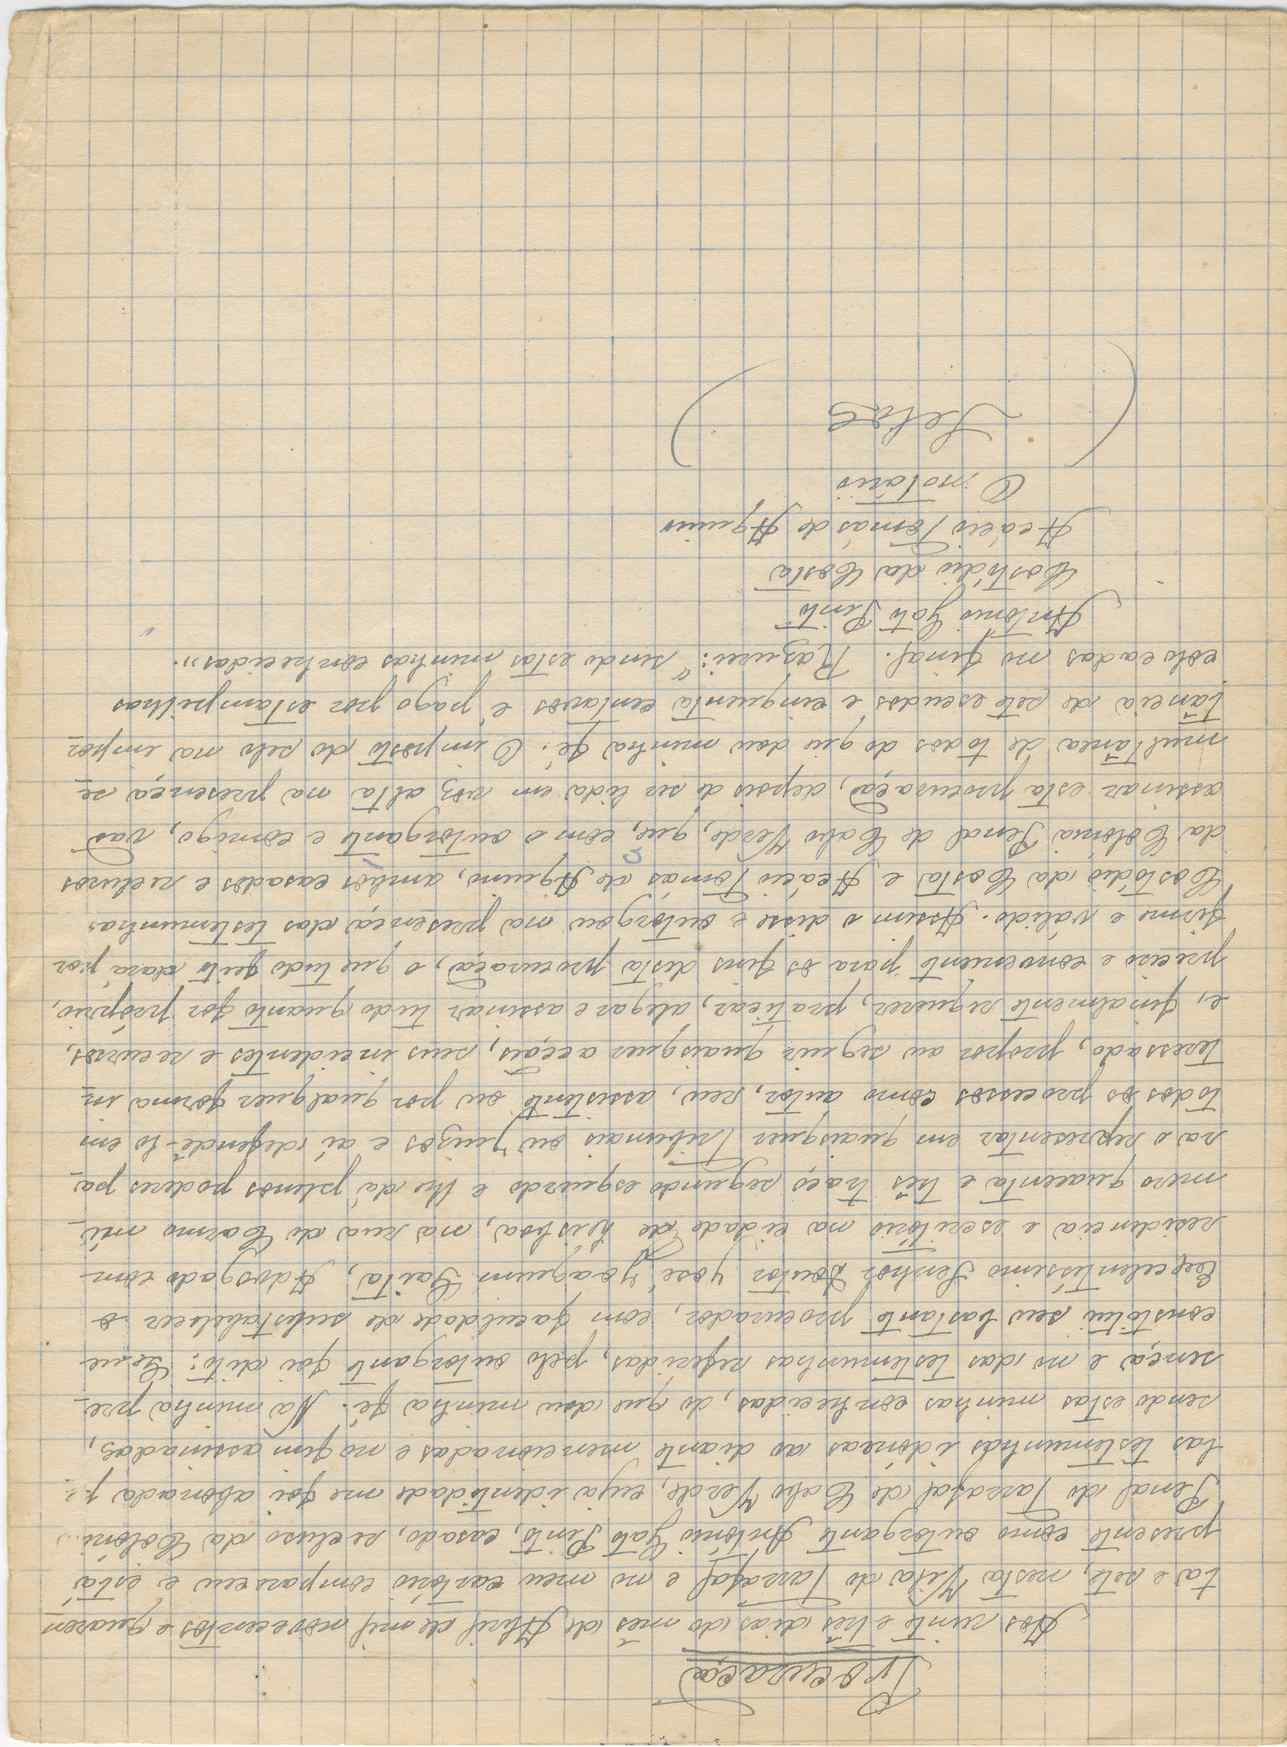 Procuração
Aos vinte e três dias do mês de Abril de mil novecentos e quaren
ta e sete, nesta Vila do Tarrafal e no meu cartório compareceu e está
presente como outorgante António Gato Pinto, casado, recluso da Colóni
Penal do Tarrafal de Cabo Verde, cuja identidade me foi abonada p
las testemunhas idóneas ao diante mencionadas e no fim assinadas,
sendo estas minhas conhecidas, do que dou minha fé. Na minha pre
sença e no das testemunhas referidas, pelo outorgante foi dito: Que
constitui seu bastante procurador, com faculdade de substabelecer o
Excelentíssimo Senhor Doutor José Joaquim Gaita, Advogado com
residencia e escritório na cidade de Lisboa, na rua do Carmo nú
mero quarenta e três traço segundo esquerdo e lhe dá plenos poderes pa
ra o representar em quaisquer Tribunais ou Juizos e aí defendê-lo em
todos os processos como autor, reu, assistente ou por qualquer forma in
teressado, propor ou seguir quaisquer acções, seus incidentes e recursos,
e, finalmente requerer, praticar, alegar e assinar tudo quanto for próprio,
preciso e conveniente para os fins desta procuração, o que tudo feito dará por
firme e válido. Assim o disse e outorgou na presença das testemunhas
Costódio da Costa e Acácio Tomás de Aquino, ambos casados e reclusos
da Colónia Penal de Cabo Verde, que, com o outorgante e comigo, vão
assinar esta procuração, depois de ser lida em voz alta na presença se
multânea de todos do que dou minha fé. O imposto do selo na impor
tância de sete escudos e cinquenta centavos é pago por estampilhas
colocadas no final. Rasurei: "sendo estas minhas conhecidas".
António Gato Pinto
Costódio da Costa
Acácio Tomás de Aquino
O notário